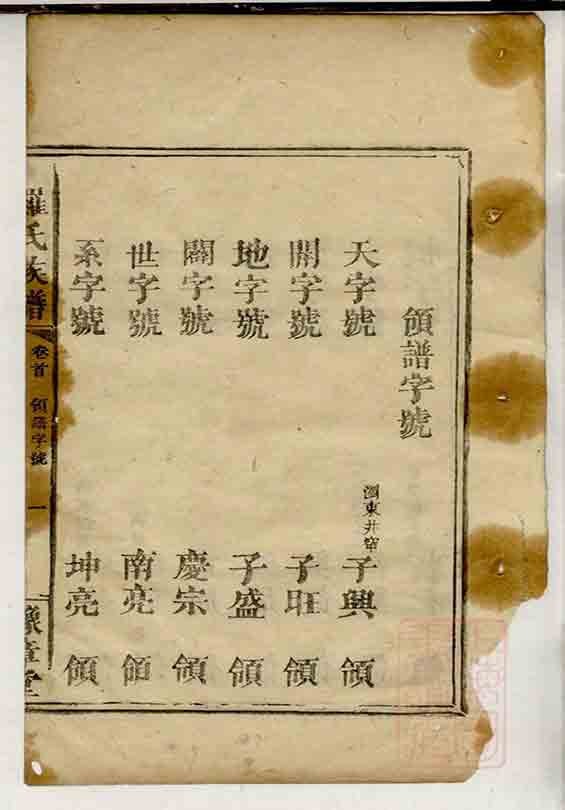 領譜字號
天字號 瀏東井窂 子興 領
開字號 子旺 領
地字號 子盛 領
闢字號 慶宗 領
世字號 南亮 領
系字號 坤亮 領
羅氏族譜 卷首 領譜字號 一 豫章堂